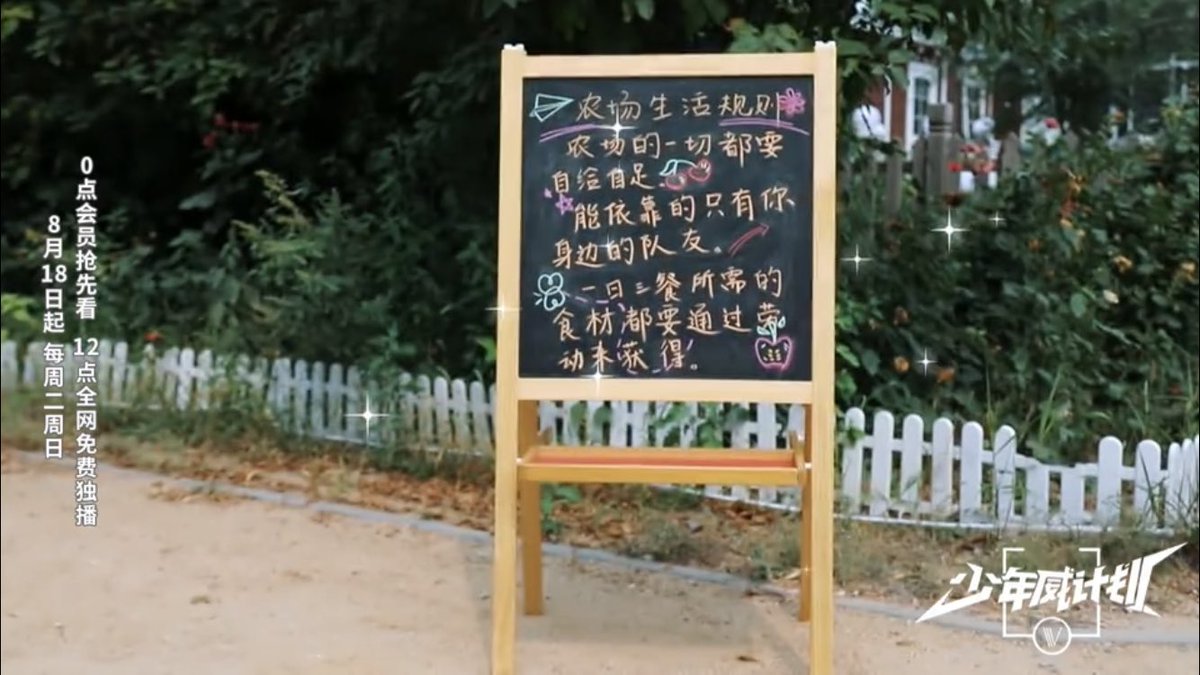 农场生活规则
农场的一切都要
自给自足。
能依靠的只有你
身边的队友。
一日三餐所需的
食材都要通过劳
动来获得。
0点会员抢先看 12点全网免费独播
8月18日起 每周二周日
少年威计划